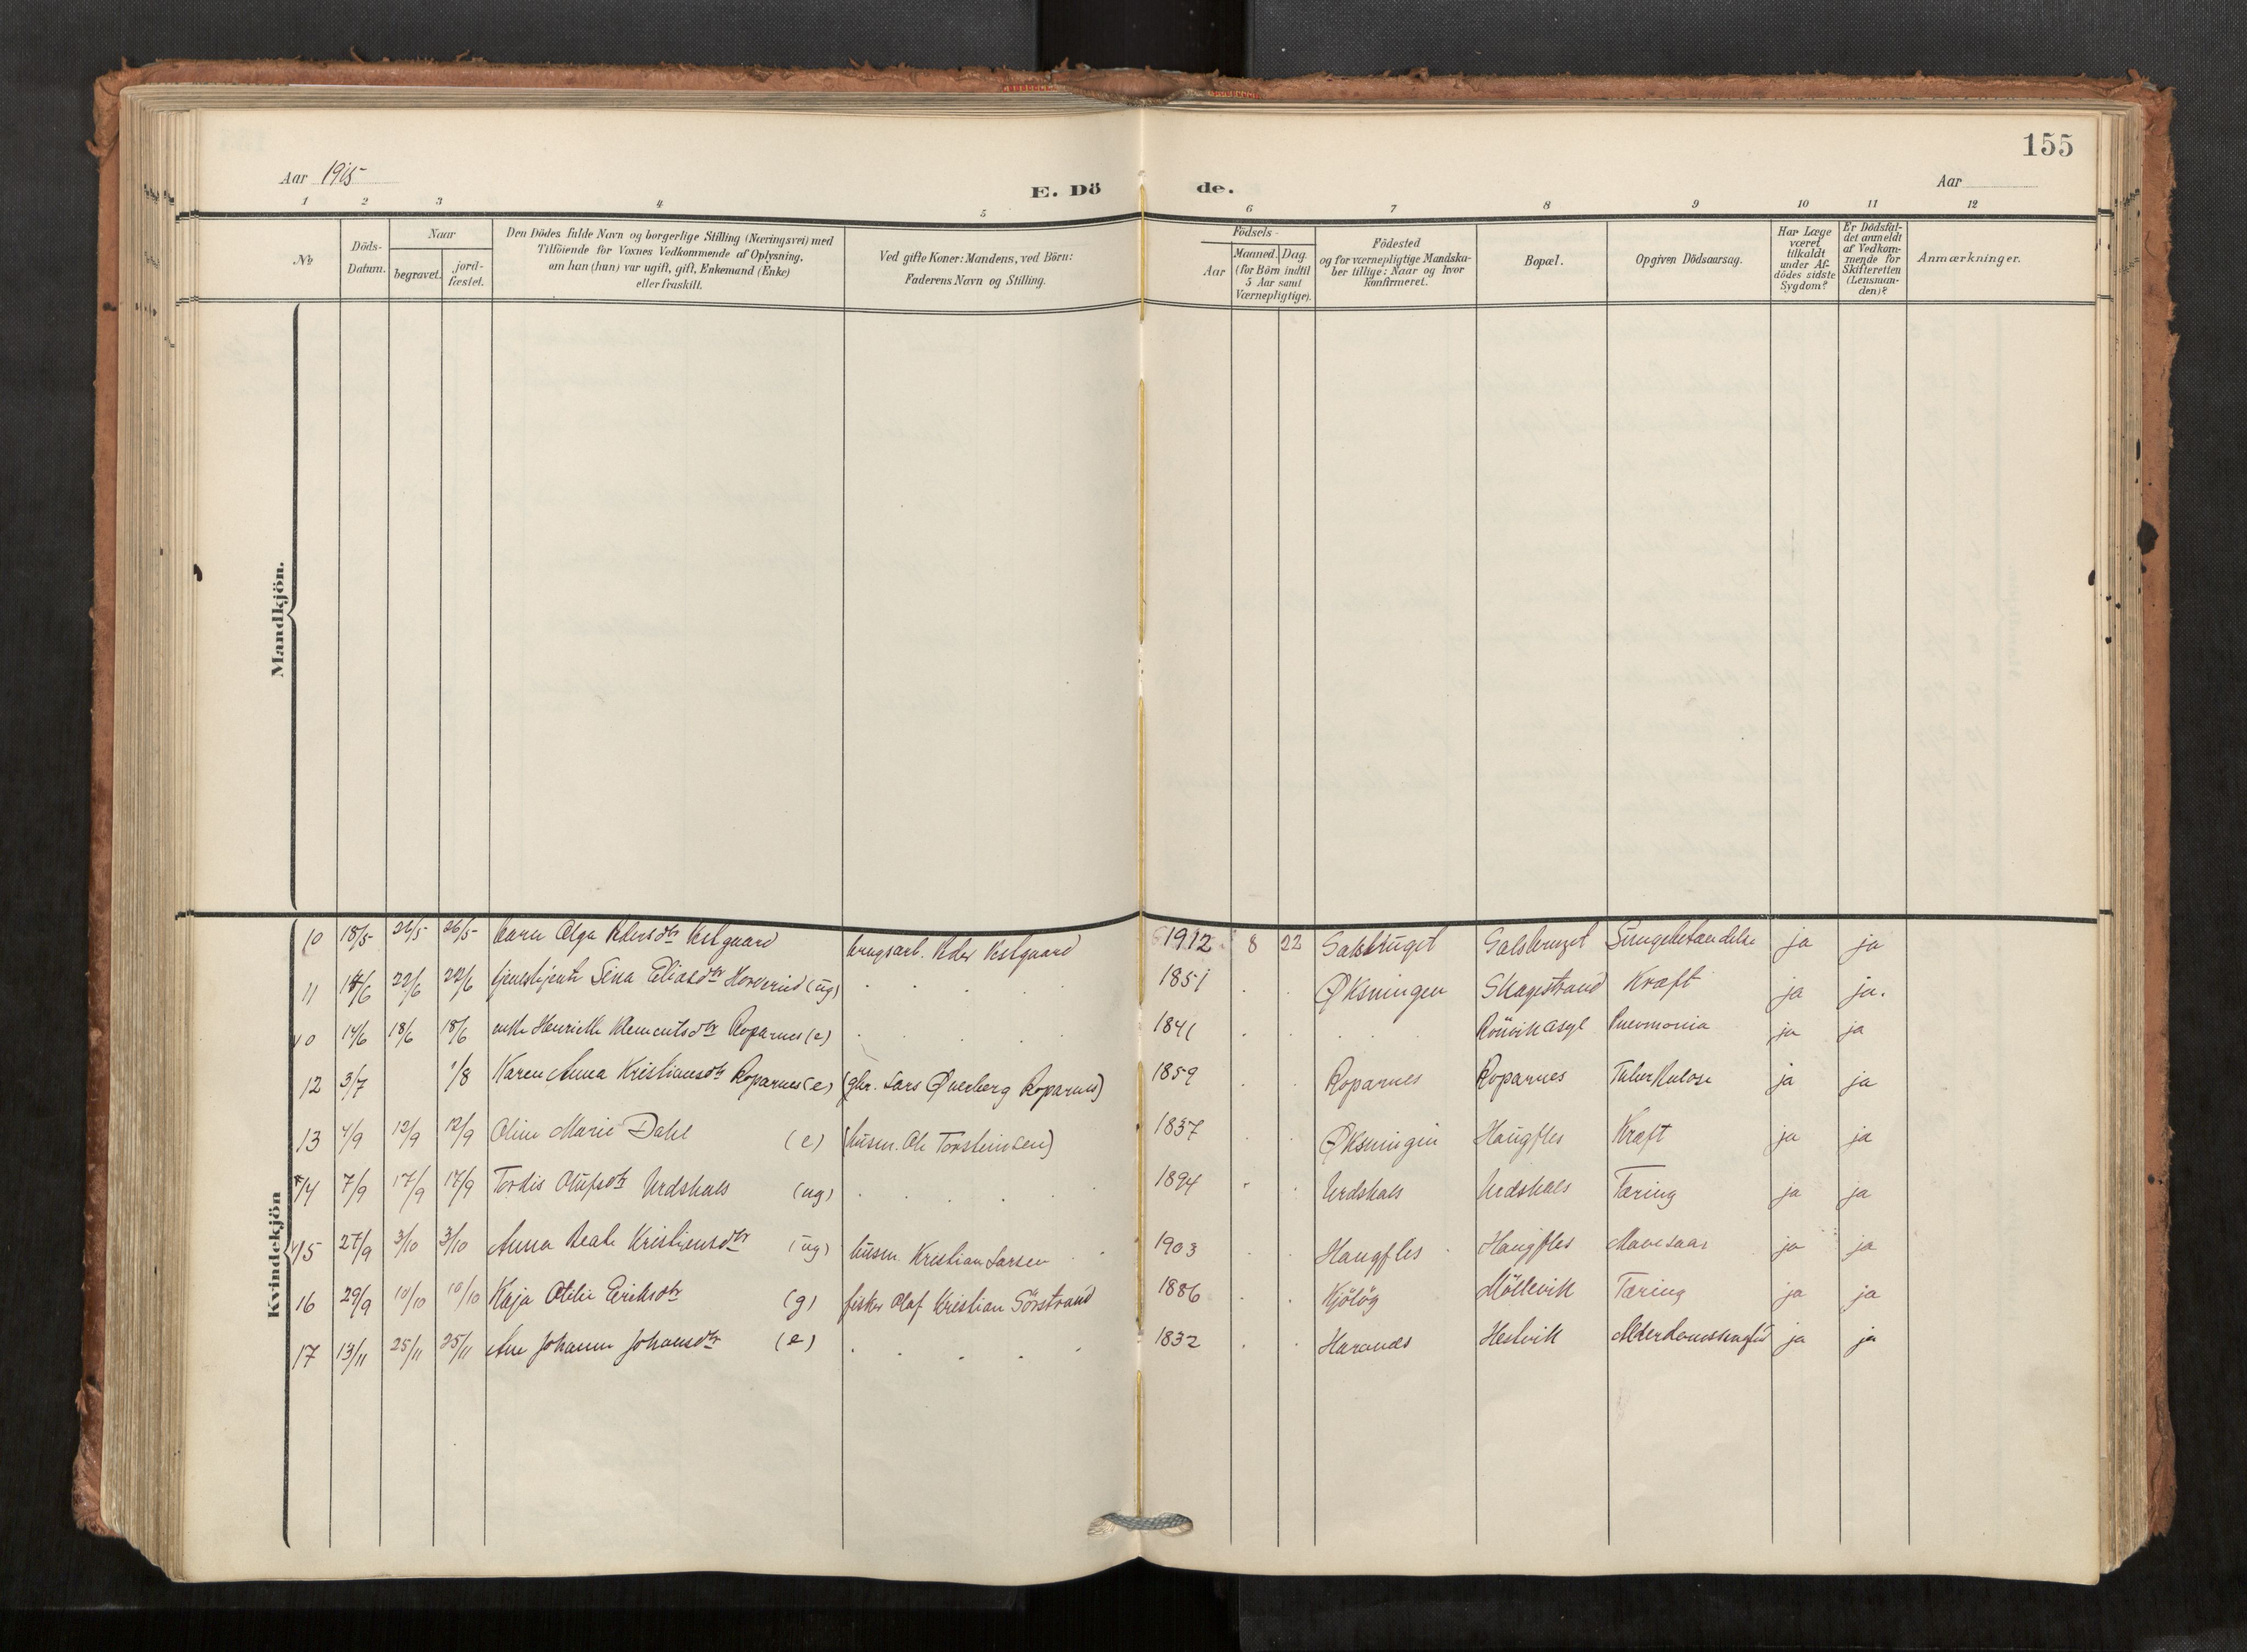 155
Aar 1915
E. Dö de.
Aar
1 2 3 4 5 6 7 8 9 10 11 12
No
Döds-Datum.
Naar
begravet.
jord-fæstet.
Den Dödes fulde Navn og borgerlige Stilling (Næringsvei) med
Tilföiende for Voxnes Vedkommende af Oplysning,
om han (hun) var ugift, gift, Enkemand (Enke)
eller fraskilt.
Ved gifte Koner: Mandens, ved Börn:
Faderens Navn og Stilling.
Födsels-
Aar
Maaned. Dag.
(for Börn indtil
5 Aar samt
Værnepligtige).
Födested
og for værnepligtige Mandska-
ber tillige: Naar og hvor
konfirmeret.
Bopæl.
Opgiven Dödsaarsag.
Har Læge
været
tilkaldt
under Af-
dödes sidste
Sygdom?
Er Dödsfal-
det anmeldt
af Vedkom-
mende for
Skifteretten
(Lensman-
den)?
Anmærkninger.
Mandkjön.
Kvindekjön
10 18/5 26/5 26/5 barn Olga Pedersdtr Vestgaard brugsarb. Peder Vestgaard 1912 8 22 Salsbruget Salsbruget Lungebetændelse ja ja
11 14/6 22/6 22/6 tjenestjente Lina Eliasdtr (ug) 1851 Øksningen Skagestrand Kræft ja ja.
10 14/6 18/6 18/6 enke Henrikke Klementsdtr Roparnes (e) 1841 Rönvik asyl Pneumonia ja ja
12 3/7 1/8 Karen Anna Kristiansdtr Roparnes (e) (gbr. Lars Øverberg Roparnes) 1859 Roparnes Roparnes Tuberkulose ja ja
13 4/9 12/9 12/9 Oline Marie Dahl (e) (husm. Ole Torsteinsen) 1837 Øksningen Haugfles Kræft ja ja
14 7/9 17/9 17/9 Tordis Olufsdtr Urdshals (ug) 1894 Urdshals Urdshals Tæring ja ja
15 27/9 3/10 3/10 Anna Beate Kristiansdtr (ug) husm. Kristian Larsen 1903 Haugfles Haugfles Mavesaar ja ja
16 29/9 10/10 10/10 Kaja Otilie Eriksdtr (g) fisker Olaf Kristian Sörstrand 1886 Kjölög Möllevik Tæring ja ja
17 13/11 25/11 25/11 Ane Johanna Johansdtr (e) 1832 Haranes Hestvik Alderdomssvaghed ja ja